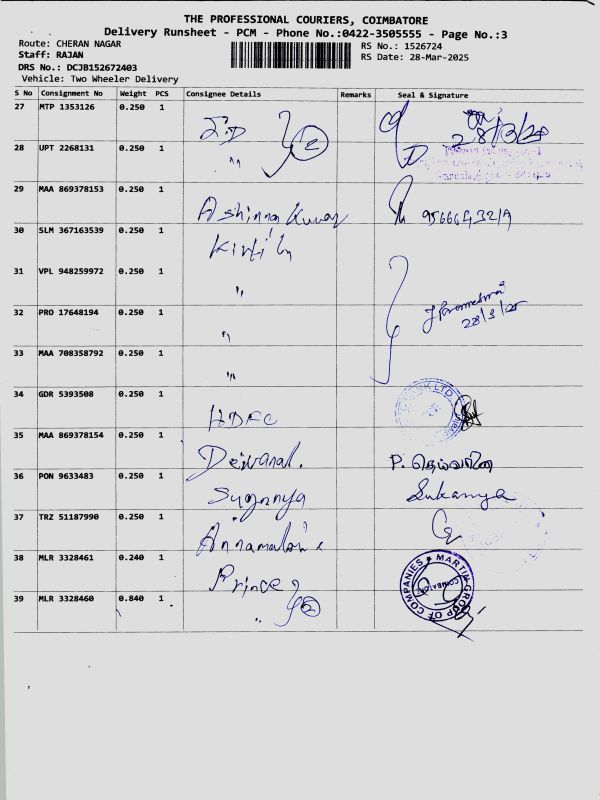 THE PROFESSIONAL COURIERS, COIMBATORE
Delivery Runsheet - PCM - Phone No.:0422-3505555 - Page No.:3
Route: CHERAN NAGAR RS No.: 1526724
Staff: RAJAN RS Date: 28-Mar-2025
DRS No.: DCJB152672403
Vehicle: Two Wheeler Delivery
S No Consignment No Weight PCS Consignee Details Remarks Seal & Signature
27 MTP 1353126 0.250 1
28/3/25
28 UPT 2268131 0.250 1 "
29 MAA 869378153 0.250 1
30 SLM 367163539 0.250 1
31 VPL 948259972 0.250 1 "
32 PRO 17648194 0.250 1 "
28/3/25
33 MAA 708358792 0.250 1 "
34 GDR 5393508 0.250 1 HDFC
BANK LTD.
35 MAA 869378154 0.250 1 Deivanai. P. தெய்வானை
36 PON 9633483 0.250 1 Sugannya Sukanya
37 TRZ 51187990 0.250 1
38 MLR 3328461 0.240 1 Prince
MARTIN GROUP OF COMPANIES
COIMBATORE
39 MLR 3328460 0.840 1 " 2